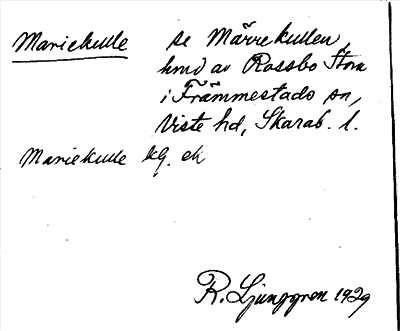 Mariekulle se Märrekullen,
hmd av Rossbo Stora
i Främmestads sn,
Viste hd, Skarab. l.
Mariekulle lg. ek
R. Ljunggren 1929